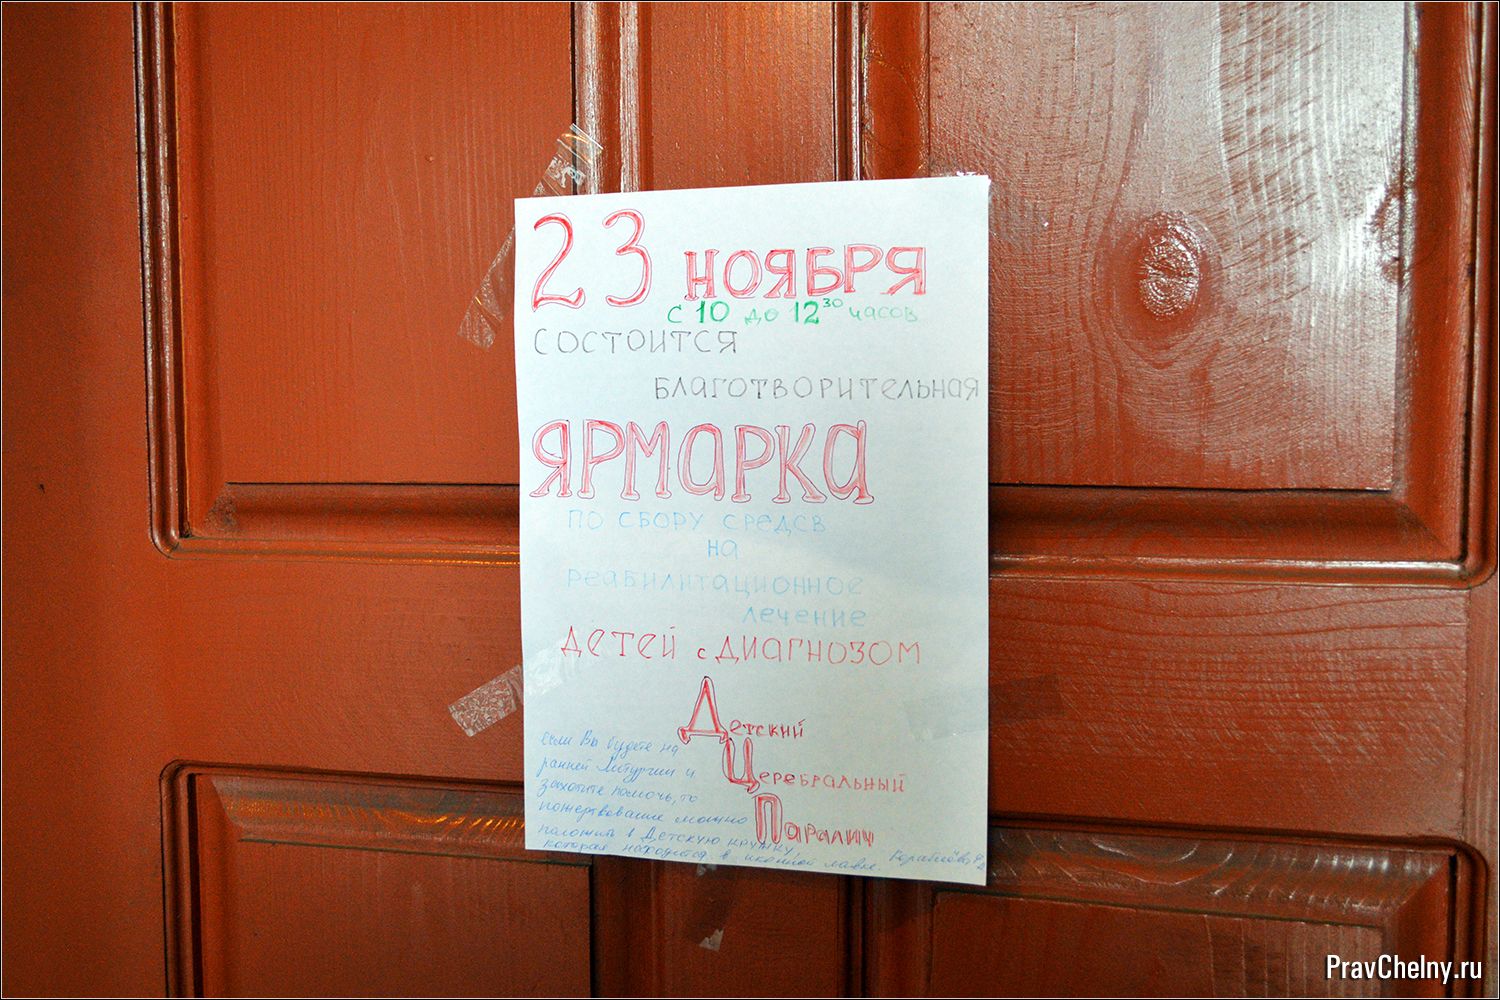 23 НОЯБРЯ
с 10 до 12³⁰ часов
СОСТОИТСЯ
БЛАГОТВОРИТЕЛЬНАЯ
ЯРМАРКА
ПО СБОРУ СРЕДСВ
НА
РЕАБИЛИТАЦИОННОЕ
ЛЕЧЕНИЕ
ДЕТЕЙ с ДИАГНОЗОМ
Детский
Церебральный
Паралич
если Вы будете на
ранней Литургии и
захотите помочь, то
пожертвование можно
положить в Детскую кружку,
которая находится в иконной лавке.
PravChelny.ru